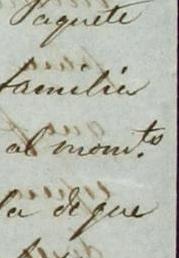 Paquete
familia
al mom.to
la de que